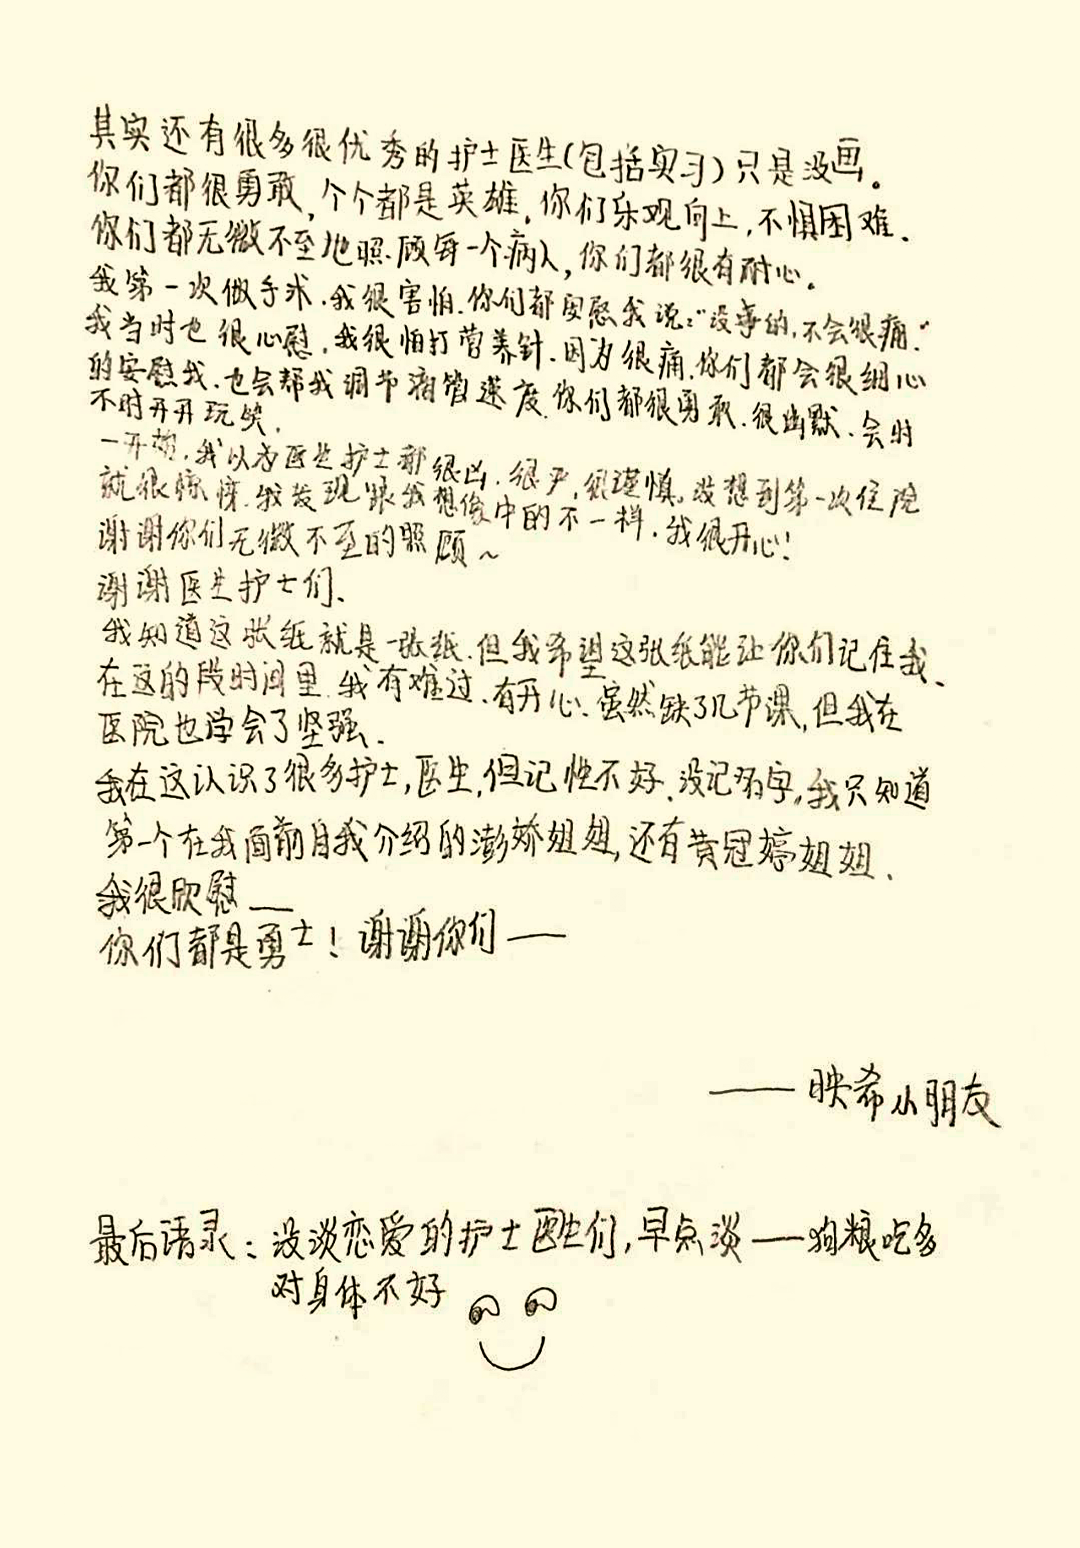 其实还有很多很优秀的护士医生(包括实习)只是没画。
你们都很勇敢,个个都是英雄,你们乐观向上,不惧困难.
你们都无微不至地照顾每一个病人,你们都很有耐心。
我第一次做手术.我很害怕.你们都安慰我说:"没事的,不会很痛."
我当时也很心慰,我很怕打营养针.因为很痛.你们都会很细心
的安慰我.也会帮我调节滴管速度.你们都很勇敢.很幽默.会时
不时开开玩笑.
一开始,我以为医生护士都很凶.很严,很谨慎。没想到第一次住院
就很惊讶.我发现跟我想像中的不一样.我很开心!
谢谢你们无微不至的照顾~
谢谢医生护士们、
我知道这张纸就是一张纸.但我希望这张纸能让你们记住我、
在这的段时间里.我有难过、有开心、虽然缺了几节课,但我在
医院也学会了坚强、
我在这认识了很多护士,医生,但记性不好.没记名字,我只知道
第一个在我面前自我介绍的澎娇姐姐,还有黄冠婷姐姐、
我很欣慰——
你们都是勇士!谢谢你们——
——映希小朋友
最后语录:没谈恋爱的护士医生们,早点谈——狗粮吃多
对身体不好